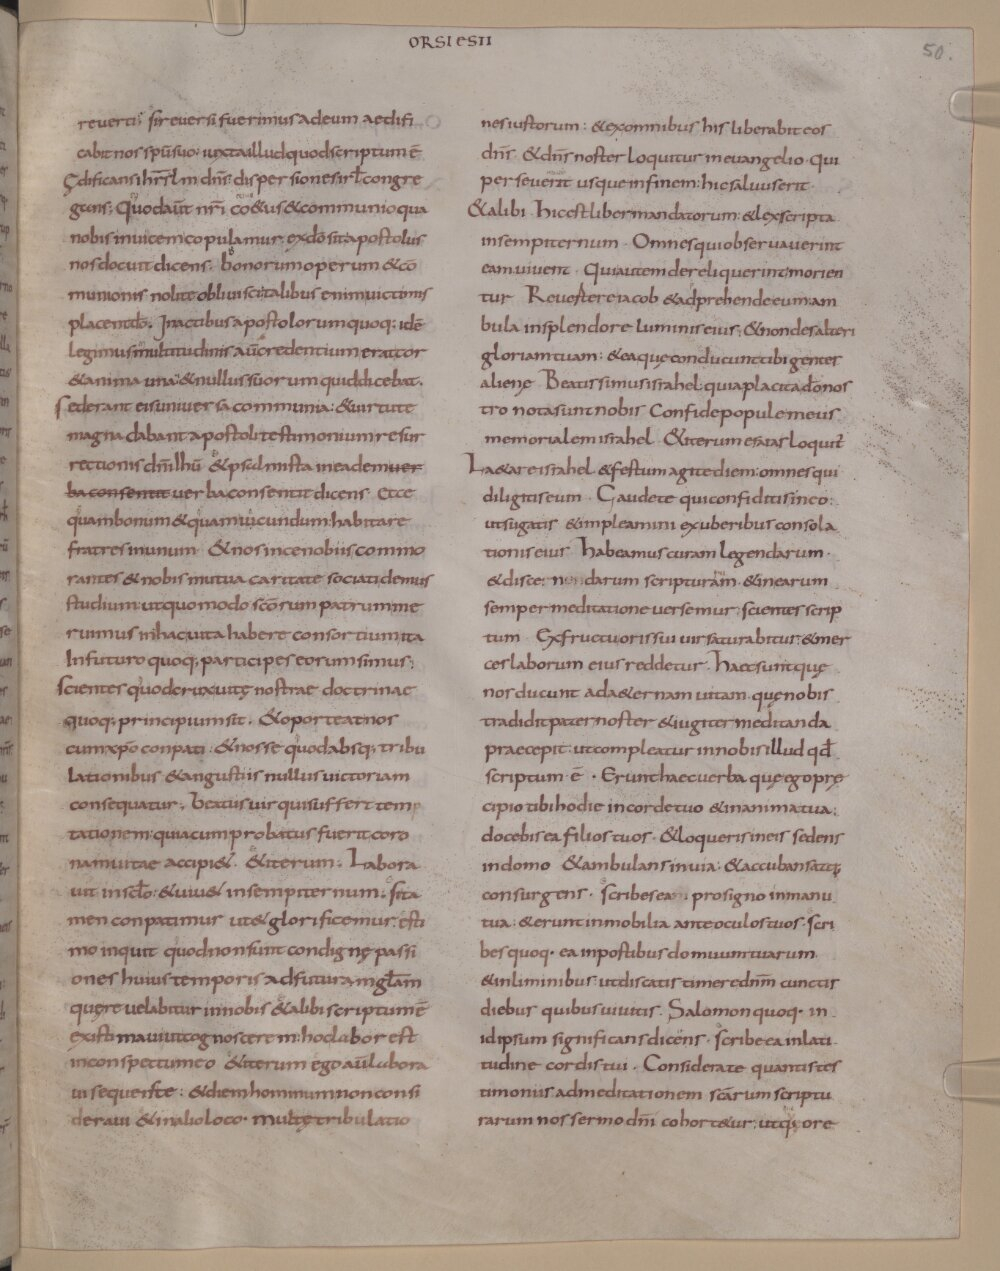 ORSIESII
50.
reverti; sireversifuerimusadeum aedifi
cabit nos spūsuo: iuxtaillud quodscriptumē
Ędificans ihrl̄m dn̄s: dispersiones irl̄ congre
gans; Quodaūt nr̄i coetus & communio qua
nobis invicem copulamur: exdō sit apostolus
nos docuit dicens; bonorum operum & cō
munionis nolite oblivisci talibus enim victimis
placetur dō; In actibus apostolorum quoq; idē
legimus multitudinis aūt credentium erat cor
& anima una & nullus suorum quid dicebat.
sed erant eis universa communia: & virtute
magna dabant apostoli testimonium resur
rectionis dn̄i ihū & psalmista in eadem ver
ba consentit verba consentit dicens Ecce
quam bonum & quam iucundum: habitare
fratres in unum & nos in cenobiis commo
rantes & nobis mutua caritate sociati demus
studium: ut quomodo scōrum patrum me
ruimus in hac vita habere consortium ita
In futuro quoq; participes eorum simus;
scientes quod crux vitę nostrae doctrinae
quoq; principium sit. & oporteat nos
cum xpō conpati: & nosse quod absq; tribu
lationibus & angustiis nullus victoriam
consequatur; Beatus vir qui suffert temp
tationem: quia cum probatus fuerit coro
nam vitae accipi&. & iterum; Labora
vit in sclō: & vivet in sempiternum: si ta
men conpatimur ut & glorificemur: esti
mo inquit quod non sunt condignę passi
ones huius temporis ad futuram gl̄am
quęrevelabitur in nobis & alibi scriptumē
existimavi ut cognoscerem: hoc labor est
in conspectu meo & iterum ego aūt labora
vi sequens te: & diem hominum non consi
deravi & in alio loco. multę tribulatio
nes iustorum: & ex omnibus his liberabit eos
dn̄s & dn̄s noster loquitur in evangelio. qui
perseverat usque in finem: hic salvus erit
& alibi. Hic est liber mandatorum: & lex scripta
in sempiternum. Omnes qui observaverint
eam vivent. Qui autem dereliquerint morien
tur Revertere iacob & adprehende eum: am
bula in splendore luminis eius: & non des alteri
gloriam tuam: & ea quę conducunt tibi gentes
alienę Beatissimus israhel: quia placita dō nos
tro nota sunt nobis Confide popule meus
memoriale m israhel & iterum esaias loquit̄
Laetare israhel & festum agite diem: omnes qui
diligitis eum. Gaudete qui confiditis in eo:
ut sugatis & impleamini ex uberibus consola
tionis eius Habeamus curam legendarum.
& discendarum scripturarum. & in earum
semper meditatione versemur; scientes scrip
tum Ex fructu oris sui vir saturabitur: & mer
ces laborum eius reddetur. Haec sunt quę
nos ducunt ad aeternam vitam. quę nobis
tradidit pater noster & iugiter meditanda
praecepit: ut compleatur in nobis illud qd̄
scriptum ē. Erunt haec verba quę ego pre
cipio tibi hodie in corde tuo & in anima tua:
docebis ea filios tuos. & loqueris in eis sedens
in domo & ambulans in via: & accubans atq;
consurgens. scribes ea pro signo in manu
tua: & erunt inmobilia ante oculos tuos. scri
bes quoq. ea in postibus domuum tuarum
& in liminibus: ut discatis timere dn̄m cunctis
diebus quibus vivitis. Salomon quoq. in
id ipsum significans dicens. scribe ea in lati
tudine cordis tui. Considerate quantis tes
timoniis ad meditationem scārum scriptu
rarum nos sermo dn̄i cohortetur: ut quę ore